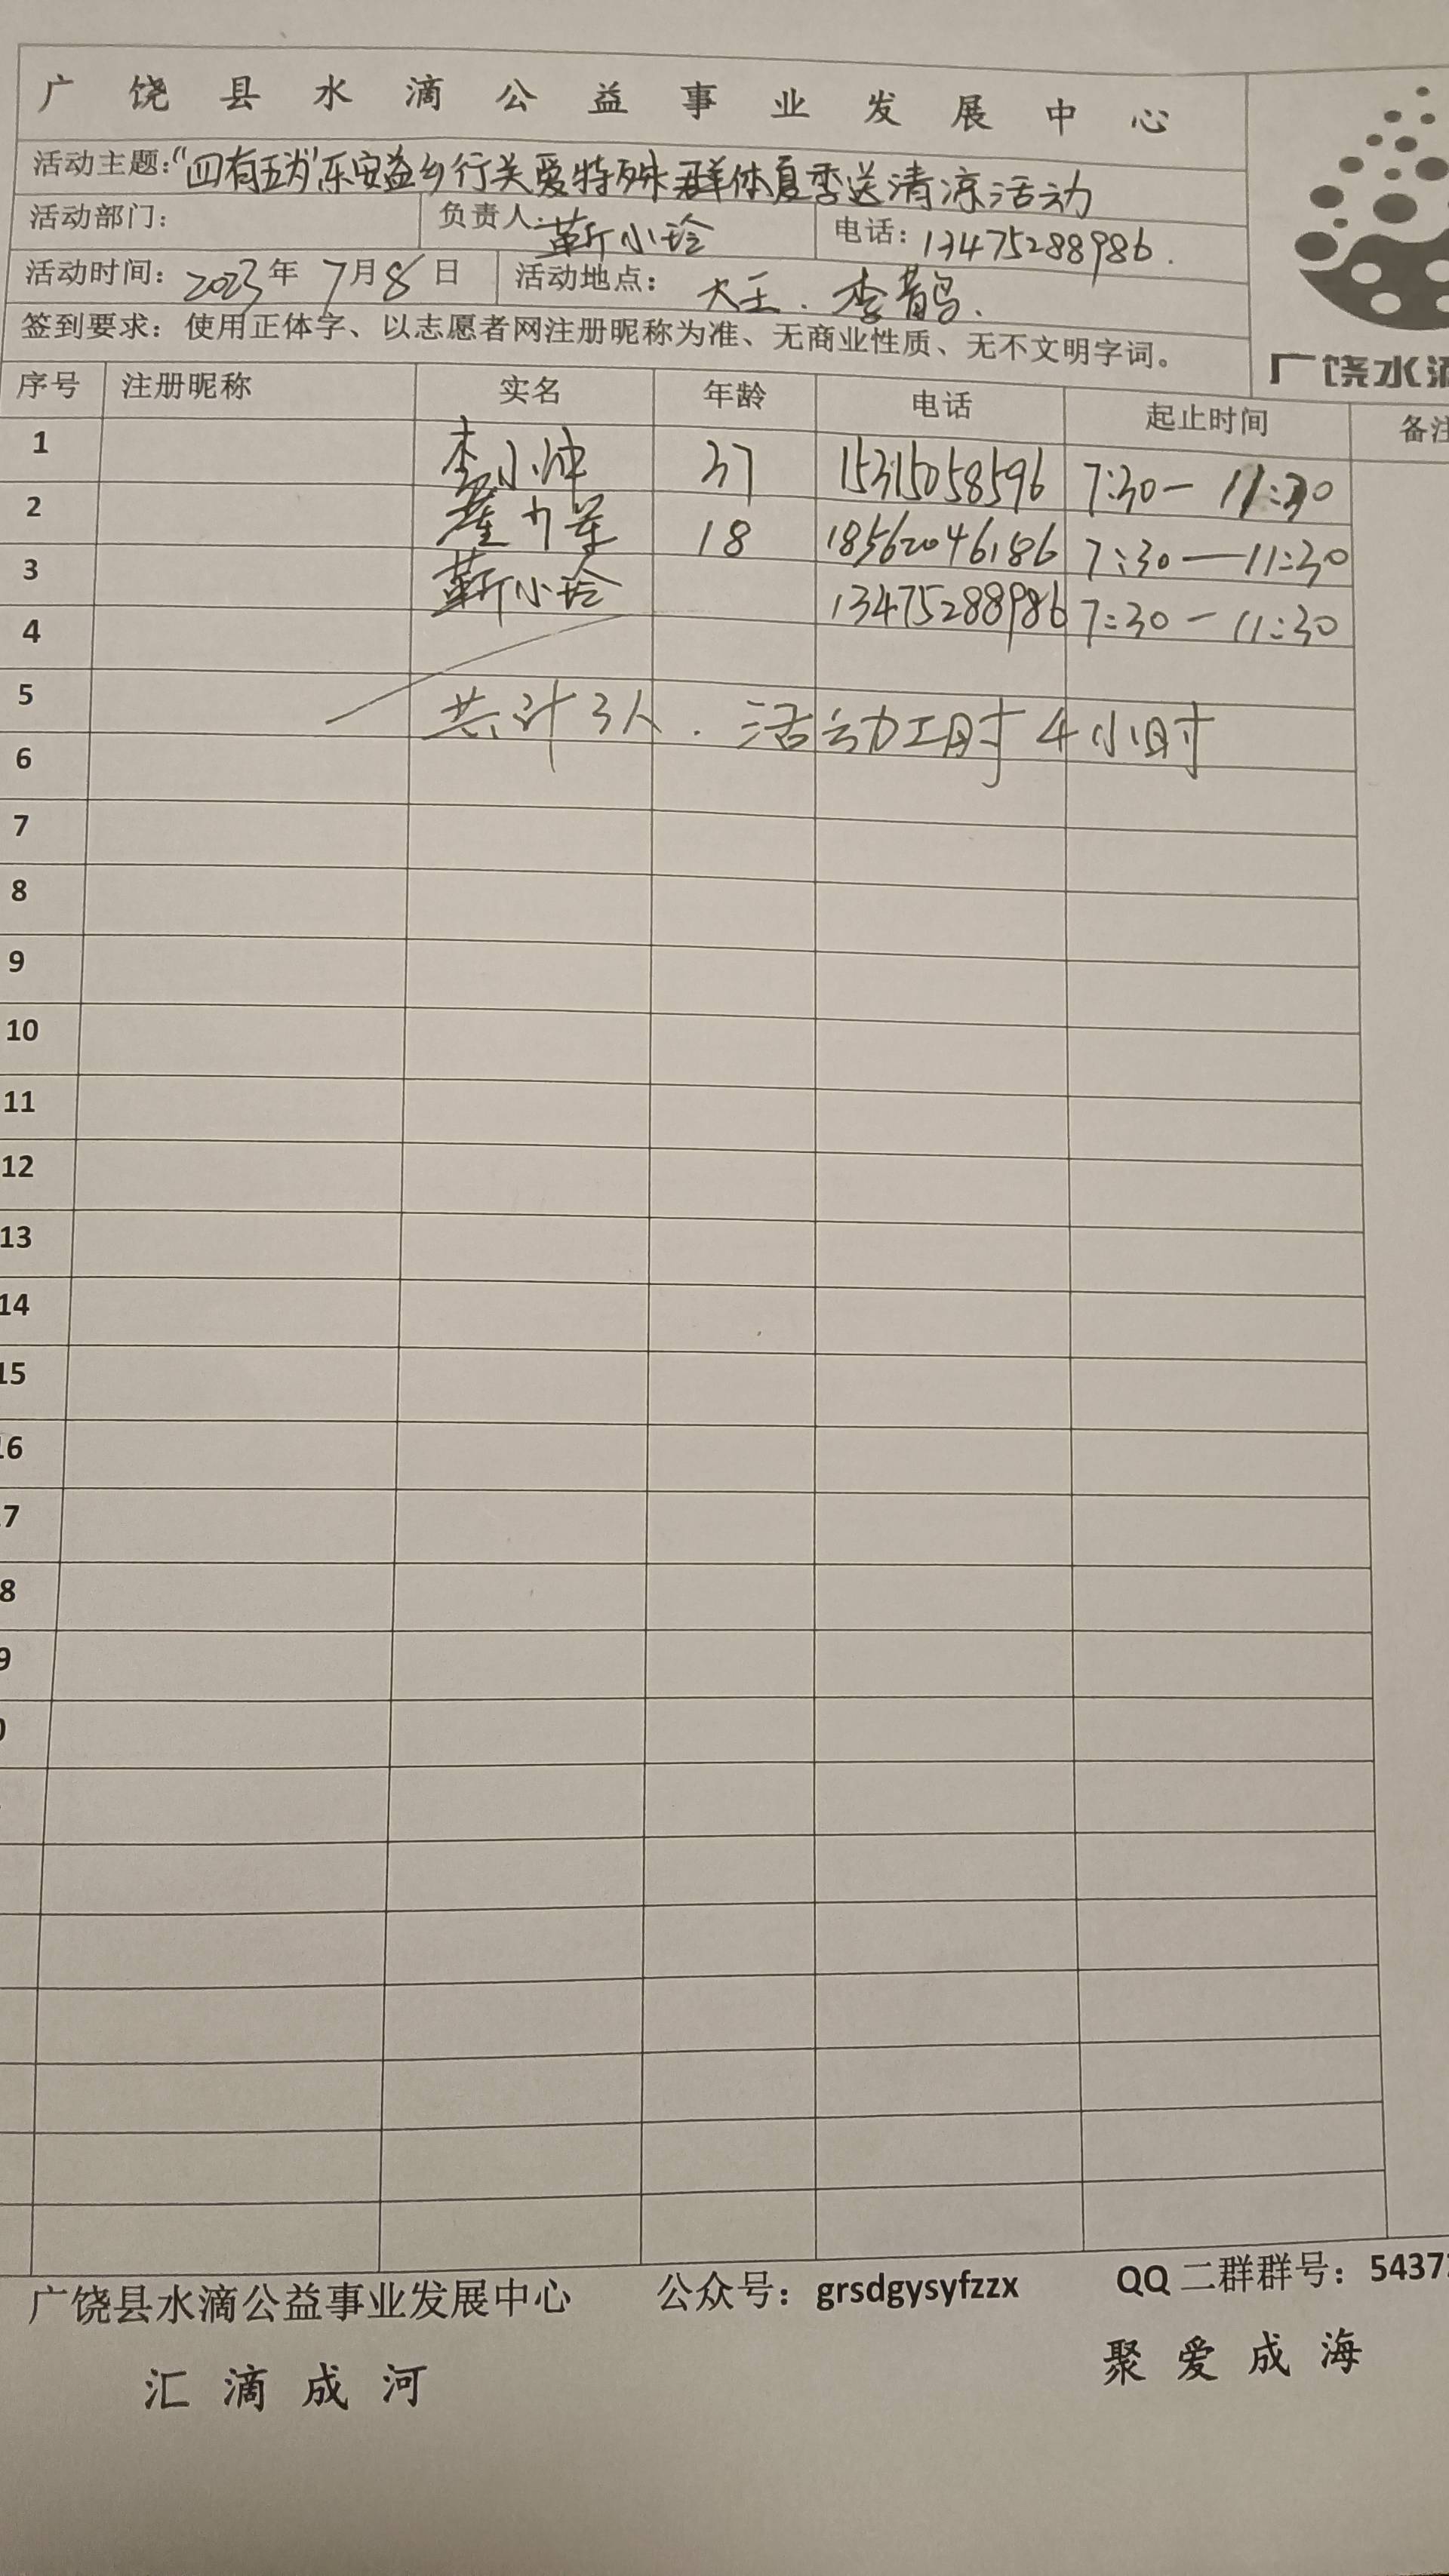 广饶县水滴公益事业发展中心
活动主题:“四有五为”乐安益乡行关爱特殊群体夏季送清凉活动
活动部门:
负责人: 靳小玲
电话: 13475288986.
活动时间: 2023年 7月8日
活动地点: 大王.李鹊.
签到要求:使用正体字、以志愿者网注册昵称为准、无商业性质、无不文明字词。
广饶水滴
序号 注册昵称 实名 年龄 电话 起止时间 备注
1 李小冲 37 15315058596 7:30— 11:30
2 18 18562046186 7:30—11:30
3 靳小玲 13475288986 7:30—11:30
4
5 共计3人.活动工时4小时
6
7
8
9
10
11
12
13
14
15
16
17
8
9
广饶县水滴公益事业发展中心 公众号:grsdgysyfzzx QQ二群群号:5437
汇滴成河 聚爱成海